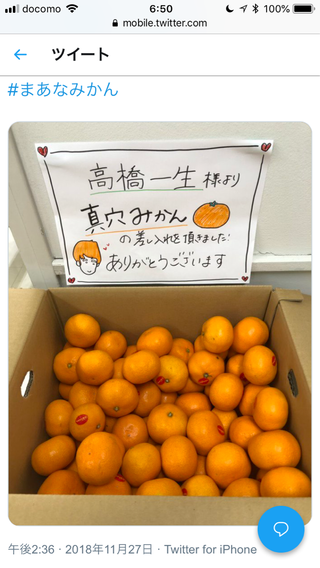 docomo 6:50 100%
mobile.twitter.com
ツイート
#まあなみかん
高橋一生様より
真穴みかん
の差し入れを頂きました!
ありがとうございます
午後2:36 · 2018年11月27日 · Twitter for iPhone